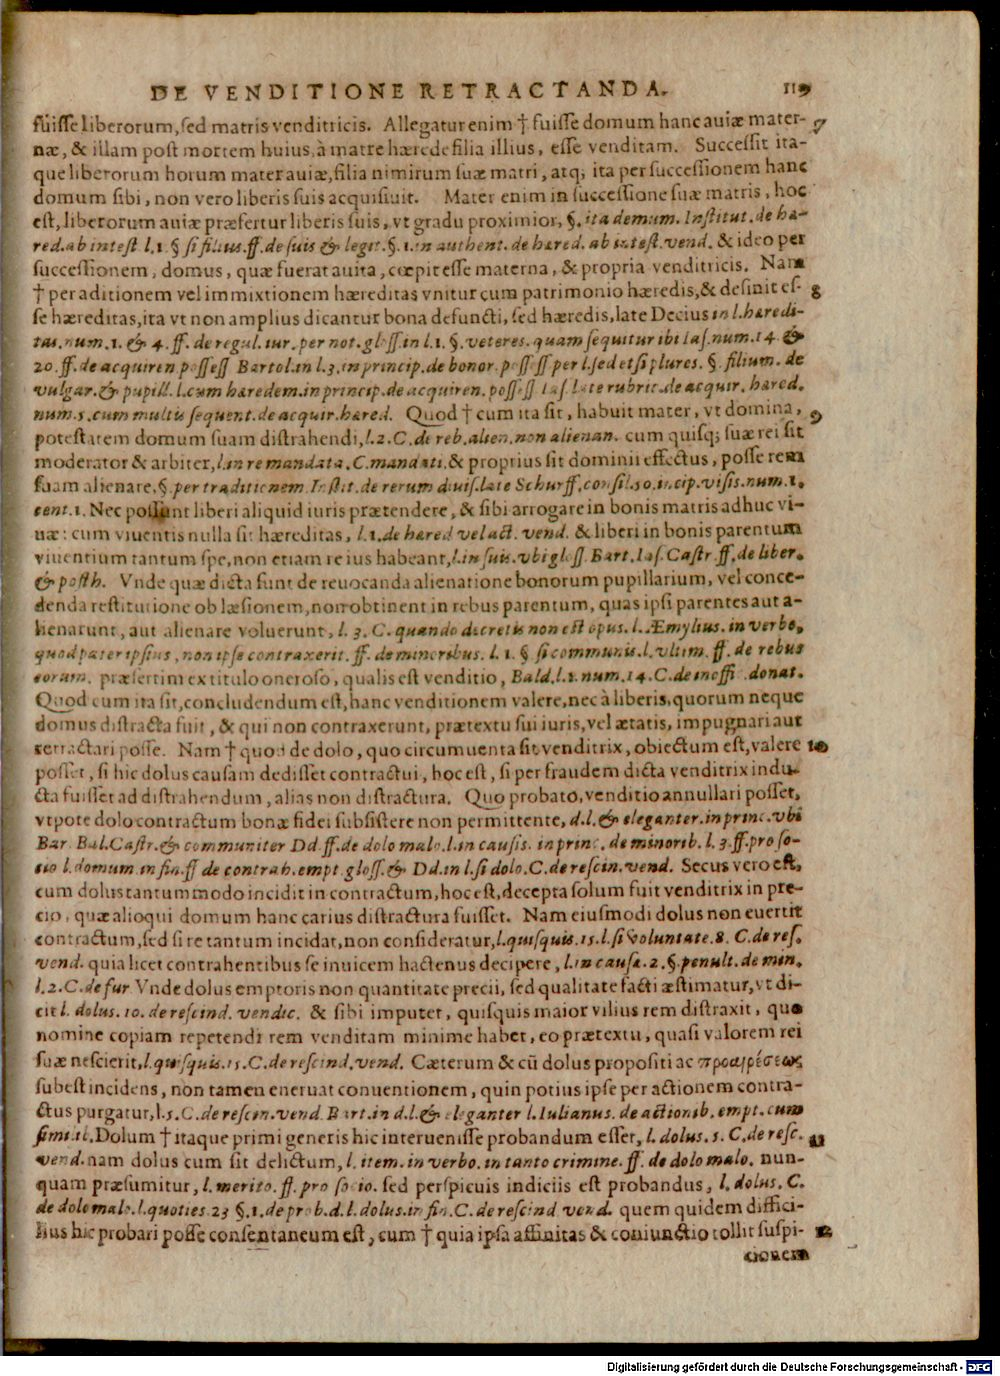 DE VENDITIONE RETRACTANDA. 119
fuisse liberorum, sed matris venditricis. Allegatur enim † fuisse domum hanc auiæ mater- 7
næ, & illam post mortem huius, à matre hærede filia illius, esse venditam. Successit ita-
que liberorum horum mater auiæ, filia nimirum suæ matri, atq; ita per successionem hanc
domum sibi, non vero liberis suis acquisiuit. Mater enim in successione suæ matris, hoc
est, liberorum auiæ præfertur liberis suis, vt gradu proximior, §. ita demum. Institut. de hæ-
red. ab intest l. 1. § si filius. ff. de suis & legit. §. 1. in authent. de hæred. ab intest. vend. & ideo per
successionem, domus, quæ fuerat auita, cœpit esse materna, & propria venditricis. Nam
† per aditionem vel immixtionem hæreditas vnitur cum patrimonio hæredis, & desinit es- 8
se hæreditas, ita vt non amplius dicantur bona defuncti, sed hæredis, late Decius in l. hæredi-
tas. num. 1. & 4. ff. de regul. iur. per not. gloss. in l. 1. §. veteres. quam sequitur ibi Ias. num. 14. &
20. ff. de acquiren. possess Bartol. in l. 3. in princip. de bonor. possess per l. sed etsi plures. §. filium. de
vulgar. & pupill. l. cum hæredem. in princip. de acquiren. possess Ias. late rubric. de acquir. hæred.
num. 5. cum multis sequent. de acquir. hæred. Quod † cum ita sit, habuit mater, vt domina, 9
potestatem domum suam distrahendi, l. 2. C. de reb. alien. non alienan. cum quisq; suæ rei sit
moderator & arbiter, l. in re mandata. C. mandati. & proprius sit dominii effectus, posse rem
suam alienare, §. per traditionem. Instit. de rerum diuis. late Schurff. consil. 10. incip. visis. num. 1.
cent. 1. Nec possunt liberi aliquid iuris prætendere, & sibi arrogare in bonis matris adhuc vi-
uæ: cum viuentis nulla sit hæreditas, l. 1. de hæred vel act. vend. & liberi in bonis parentum
viuentium tantum spe, non etiam re ius habeant, l. in suis. vbi gloss. Bart. Ias. Castr. ff. de liber.
& posth. Vnde quæ dicta sunt de reuocanda alienatione bonorum pupillarium, vel conce-
denda restitutione ob læsionem, non obtinent in rebus parentum, quas ipsi parentes aut a-
lienarunt, aut alienare voluerunt, l. 3. C. quando decretis non est opus. l. Æmylius. in verbo,
quod pater ipsius, non ipse contraxerit. ff. de minoribus. l. 1. § si communis. l. vltim. ff. de rebus
eorum. præsertim ex titulo oneroso, qualis est venditio, Bald. l. 1. num. 14. C. de inoffi. donat.
Quod cum ita sit, concludendum est, hanc venditionem valere, nec à liberis, quorum neque
domus distracta fuit, & qui non contraxerunt, prætextu sui iuris, vel ætatis, impugnari aut
retractari posse. Nam † quod de dolo, quo circumuenta sit venditrix, obiectum est, valere 10
posset, si hic dolus causam dedisset contractui, hoc est, si per fraudem dicta venditrix indu-
cta fuisset ad distrahendum, alias non distractura. Quo probato, venditio annullari posset,
vtpote dolo contractum bonæ fidei subsistere non permittente, d. l. & eleganter. in princ. vbi
Bar. Bal. Castr. & communiter Dd. ff. de dolo malo. l. in causis. in princ. de minorib. l. 3. ff. pro so-
cio l. domum. in fin. ff de contrah. empt. gloss. & Dd. in l. si dolo. C. de rescin. vend. Secus vero est,
cum dolus tantummodo incidit in contractum, hoc est, decepta solum fuit venditrix in pre-
cio, quæ alioqui domum hanc carius distractura fuisset. Nam eiusmodi dolus non euertit
contractum, sed si re tantum incidat, non consideratur, l. quisquis. 15. l. si voluntate. 8. C. de res.
vend. quia licet contrahentibus se inuicem hactenus decipere, l. in causæ. 2. §. penult. de min.
l. 2. C. de fur Vnde dolus emptoris non quantitate precii, sed qualitate facti æstimatur, vt di-
cit l. dolus. 10. de rescind. vendic. & sibi imputet, quisquis maior vilius rem distraxit, quo
nomine copiam repetendi rem venditam minime habet, eo prætextu, quasi valorem rei
suæ nescierit, l. quisquis. 15. C. de rescind. vend. Cæterum & cū dolus propositi ac προαιρέσεως
subest incidens, non tamen eneruat conuentionem, quin potius ipse per actionem contra-
ctus purgatur, l. 5. C. de rescin. vend. Bart. in d. l. & eleganter l. Iulianus. de actionib. empt. cum
simil. Dolum † itaque primi generis hic interuenisse probandum esset, l. dolus. 5. C. de resc. 11
vend. nam dolus cum sit delictum, l. item. in verbo. in tanto crimine. ff. de dolo malo. nun-
quam præsumitur, l. merito. ff. pro socio. sed perspicuis indiciis est probandus, l. dolus. C.
de dolo malo. l. quoties. 23 §. 1. de prob. d. l. dolus. in fin. C. de rescind vend. quem quidem diffici-
lius hic probari posse consentaneum est, cum † quia ipsa affinitas & coniunctio tollit suspi- 12
cionem
Digitalisierung gefördert durch die Deutsche Forschungsgemeinschaft - DFG